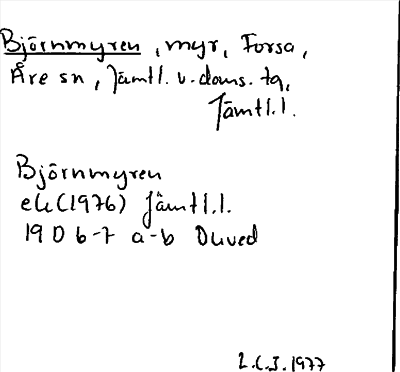 Björnmyren, myr, Forsa,
Åre sn, Jämtl. v. doms. tg,
Jämtl.l.
Björnmyren
ek (1976) Jämtl.l.
19 D 6-7 a-b Duved
1977